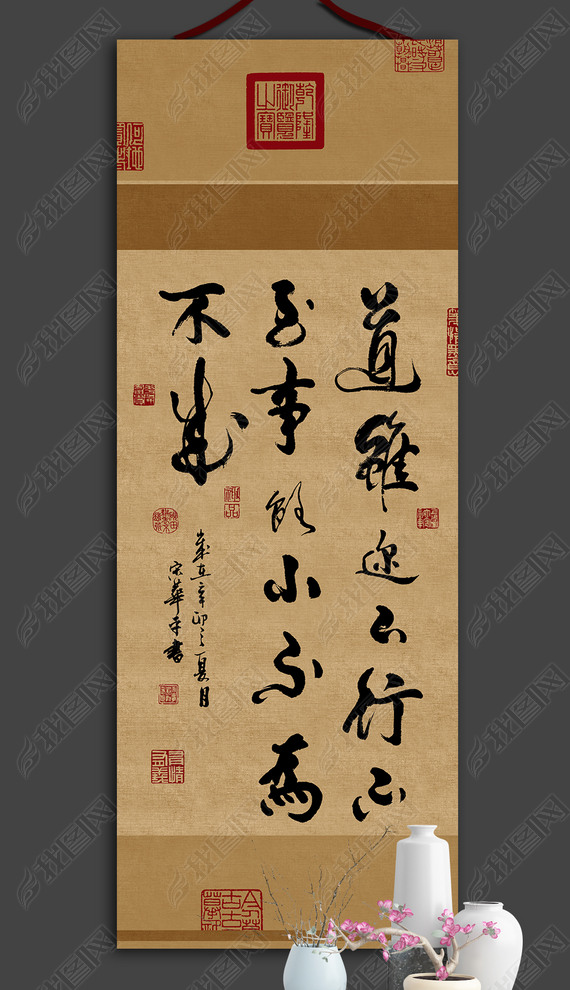 道雖迩不行不
至事雖小不為
不成
歲在辛卯之夏月
宋華平書
乾隆御覽之寶
我图网